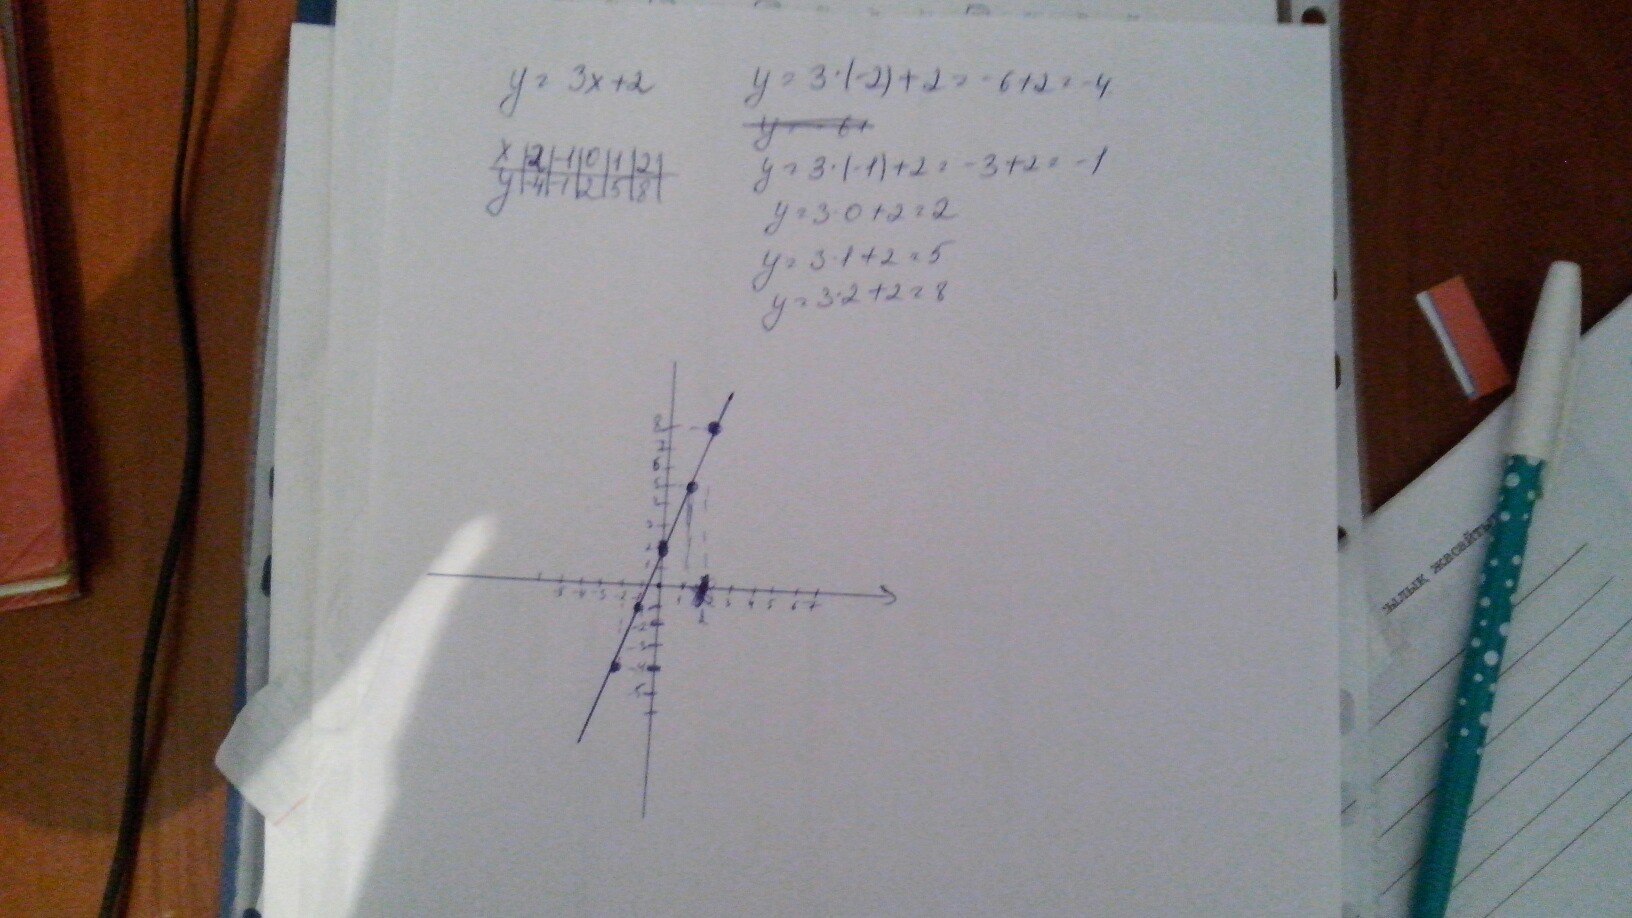 y = 3x+2
y = 3·(-2)+2 = -6+2 = -4
y = -6+
x |2|-1|0|1|2|
y |-4|-1|2|5|8|
y = 3·(-1)+2 = -3+2 = -1
y = 3·0+2=2
y = 3·1+2=5
y = 3·2+2=8
зылық жасайты